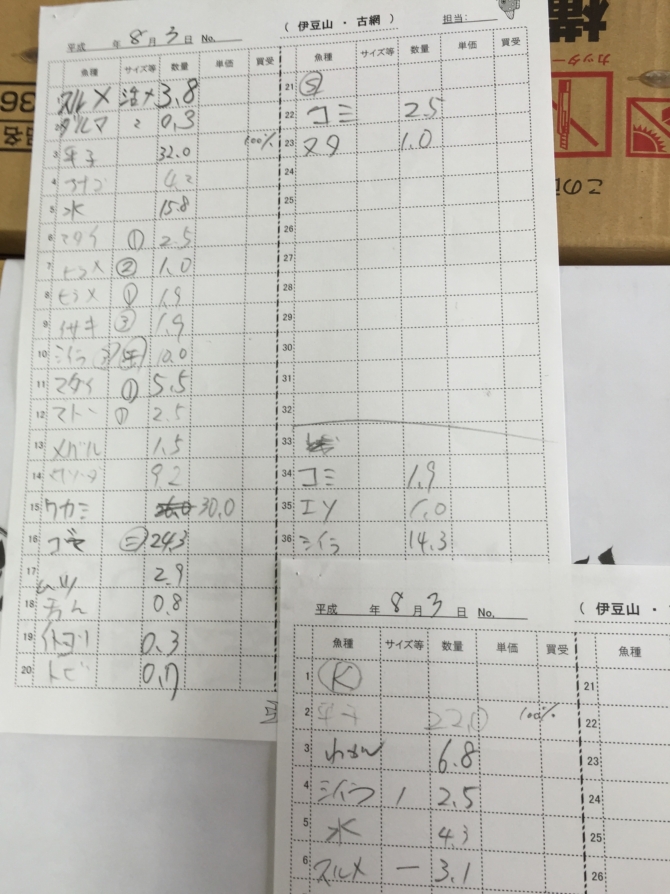 （ 伊豆山 ・ 古網 ）
平成 年 8 月 3 日 No. 担当:
魚種 サイズ等 数量 単価 買受 魚種 サイズ等 数量 単価 買受
スルメ 活〆 3.8
2 ダルマ 2 0.3
3 平子 32.0 100%
4 アナゴ 4.2
5 水 15.8
6 マダイ ① 2.5
7 ヒラメ ② 1.0
8 ヒラメ ① 1.9
9 イサキ ③ 1.9
10 シイラ 10.0
11 マダイ ① 5.5
12 マトー ① 2.5
13 メバル 1.5
14 ワソーダ 9.2
15 ワカミ 30.0
16 ゴマ ㊁ 24.3
17 ムツ 2.9
18 0.8
19 イトヨリ 0.3
20 トビ 0.7
21 Ⓢ
22 コミ 2.5
23 ヌタ 1.0
24
25
26
27
28
29
30
31
32
33
34 コミ 1.9
35 エソ 1.0
36 シイラ 14.3
平成 年 8 月 3 日 No. （ 伊豆山 ・
魚種 サイズ等 数量 単価 買受 魚種
1 Ⓚ 21
2 平子 22.0 100% 22
3 わかし 6.8 23
4 シイラ 1 2.5 24
5 水 4.3 25
6 スルメ 一 3.1 26
カッター
この